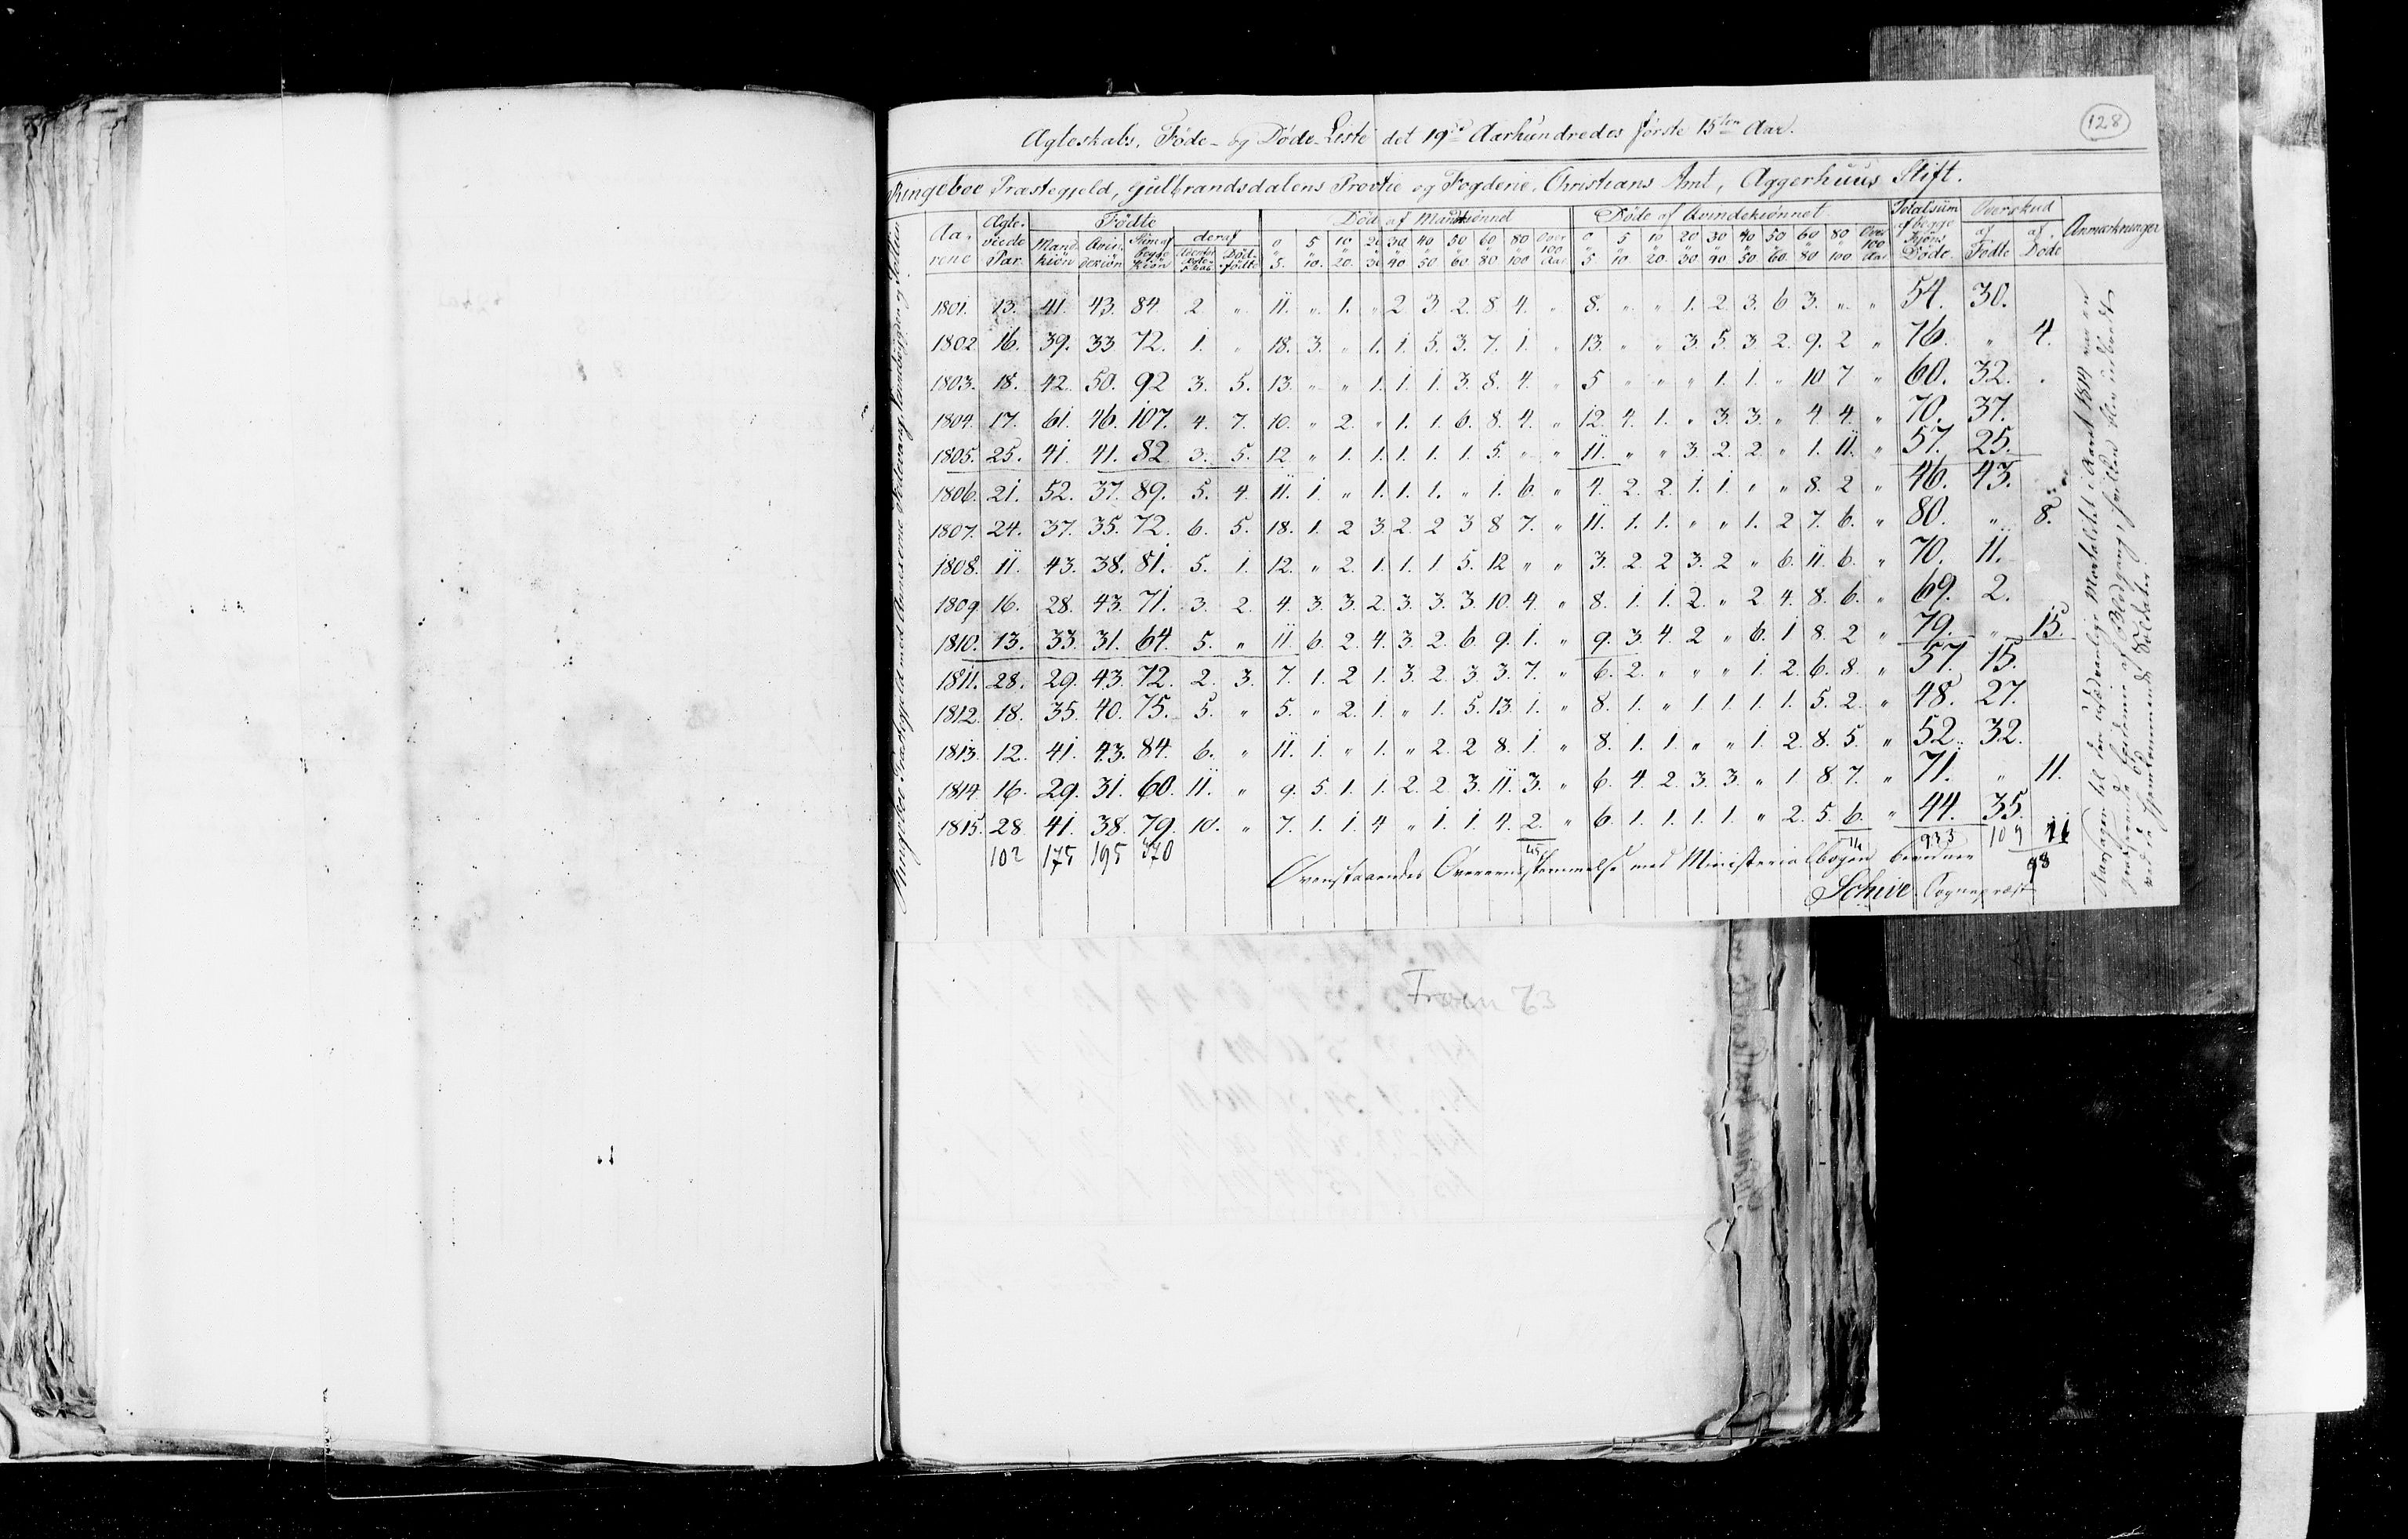 128
Ægteskabs, Föde- og Döde-Liste det 19de Aarhundredes förste 15ten Aar.
Ringeboe Præstegjeld, Gulbrandsdalens Provstie og Fogderie, Christians Amt, Aggerhuus Stift.
Ringeboe Præstegjeld med Annexerne
Aarene Ægteviede Par. Födte Döde af Mandkiönnet Döde af Qvindekiönnet Totalsum af begge Kjöns Döde. Overskud Anmærkninger
Mandkiön Qvindekiön Sum af begge Kiön deraf af Födte af Döde
Udenfor Ægteskab Dödfödte
0 " 5. 5 " 10. 10 " 20. 20 " 30 30 " 40 40 " 50 50 " 60 60 " 80 80 " 100 Over 100 Aar 0 " 5 5 " 10 10 " 20. 20 " 30 30 " 40 40 " 50 50 " 60. 60 " 80 80 " 100 Over 100 Aar
1801. 13. 41. 43. 84 2. " 11. " 1. " 2 3 2. 8. 4. " 8. " " 1. 2. 3. 6 3. " " 54. 30.
1802 16. 39. 33 72. 1. " 18. 3. " 1. 1. 5. 3. 7. 1. " 13. " " 3. 5. 3 2. 9. 2 " 76. " 4.
1803. 18. 42. 50. 92 3. 5. 13. " " 1. 1. 1. 3. 8. 4. " 5 " " " 1. 1. " 10 7 " 60. 32.
1804. 17. 61. 46. 107. 4. 7. 10. " 2. " 1. 1. 6. 8. 4. " 12. 4. 1. " 3. 3. " 4 4. " 70. 37.
1805. 25. 41. 41. 82. 3. 5. 12. " 1. 1. 1. 1. 1. 5. " " 11. " " 3. 2. 2 " 1. 11. " 57. 25.
1806. 21. 52. 37. 89. 5. 4. 11. 1. " 1. 1. 1. " 1. 6. " 4. 2. 2. 1. 1. " " 8. 2 " 46. 43.
1807. 24. 37. 35. 72. 6. 5. 18. 1. 2 3. 2. 2 3 8 7. " 11. 1. 1. " " 1. 2 7. 6. " 80. " 8.
1808. 11. 43. 38. 81. 5. 1. 12. " 2. 1. 1. 1 5. 12 " " 3. 2. 2 3. 2 " 6. 11. 6. " 70. 11.
1809 16. 28. 43. 71. 3. 2. 4. 3. 3. 2. 3. 3. 3. 10. 4. " 8. 1. 1. 2. " 2 4. 8. 6. " 69. 2.
1810. 13. 33. 31. 64. 5. " 11. 6. 2. 4. 3. 2. 6. 9. 1. " 9. 3. 4. 2 " 6. 1 8. 2 " 79. " 15.
1811. 28. 29. 43. 72. 2. 3. 7. 1. 2 1. 3. 2. 3 3. 7. " 6. 2. " " " 1. 2. 6. 8. " 57. 15.
1812. 18. 35. 40. 75. 5. " 5. " 2. 1. " 1. 5. 13. 1. " 8. 1. " 1 1. 1. 1. 5. 2. " 48. 27.
1813. 12. 41. 43. 84. 6. " 11. 1. " 1. " 2. 2 8. 1. " 8. 1. 1. " " 1. 2. 8. 5. " 52. 32.
1814. 16. 29. 31. 60. 11. " 9. 5. 1. 1. 2. 2. 3. 11. 3. " 6. 4. 2. 3. 3. " 1. 8. 7. " 71. " 11.
1815. 28. 41. 38. 79. 10. " 7. 1. 1. 4 " 1. 1. 4. 2. " 6. 1. 1. 1. 1. " 2. 5. 6. " 44. 35.
102 175 195 370 45 74 933 109 11
Ovenstaaendes Overeensstemmelse med Ministerialbogen bevidner
Schive Sognepræst
Aarsagen til den usædvanlige Mortalitet i Aaret 1814 var en
af Blodgang, hvilken blev udbredt
ved de hjemkommende Soldater.
Froen 73